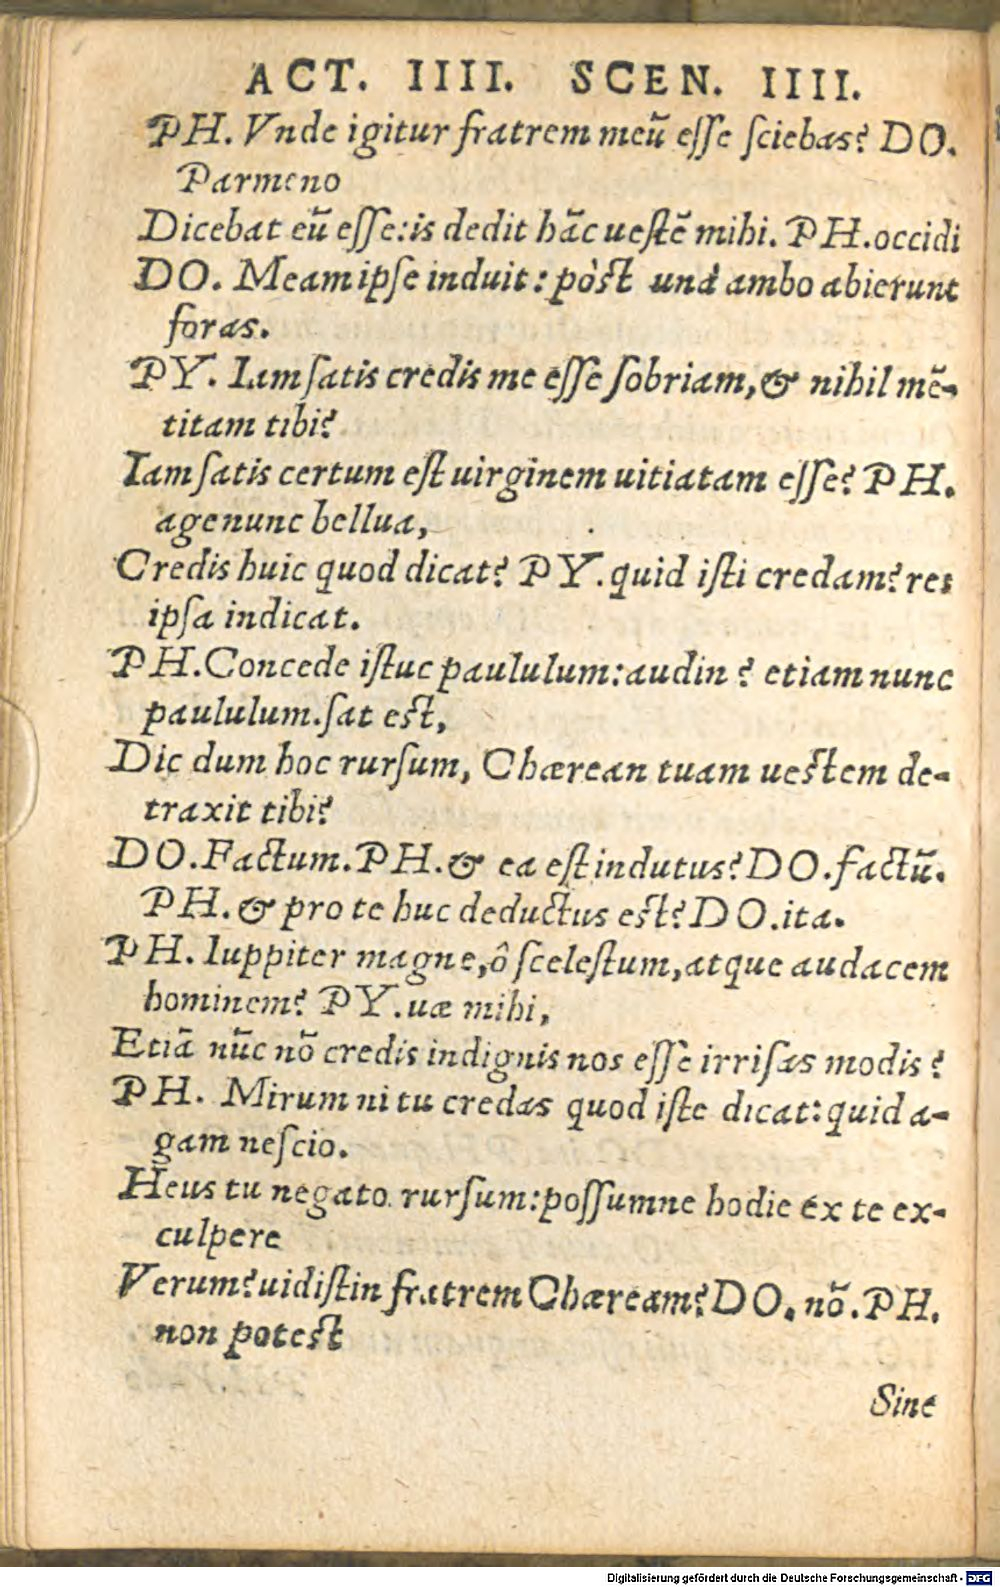 ACT. IIII. SCEN. IIII.
PH. Vnde igitur fratrem meū eſſe ſciebas? DO.
Parmeno
Dicebat eū eſſe:is dedit hāc ueſtē mihi. PH.occidi
DO. Meam ipſe induit: pòſt unà ambo abierunt
foras.
PY. Iam ſatis credis me eſſe ſobriam,& nihil mē-
titam tibi?
Iam ſatis certum eſt uirginem uitiatam eſſe? PH.
age nunc bellua,
Credis huic quod dicat? PY.quid iſti credam?res
ipſa indicat.
PH.Concede iſtuc paululum:audin? etiam nunc
paululum.ſat eſt,
Dic dum hoc rurſum, Chærean tuam ueſtem de-
traxit tibi?
DO.Factum.PH.& ea eſt indutus?DO.factū.
PH.& pro te huc deductus eſt?DO.ita.
PH. Iuppiter magne,ô ſceleſtum,atque audacem
hominem? PY.uæ mihi,
Etiā nūc nō credis indignis nos eſſe irriſas modis?
PH. Mirum ni tu credas quod iſte dicat:quid a-
gam neſcio.
Heus tu negato rurſum:poſſumne hodie ex te ex-
culpere
Verum?uidiſtin fratrem Chæream?DO. nō.PH.
non poteſt
Sine
Digitalisierung gefördert durch die Deutsche Forschungsgemeinschaft - DFG